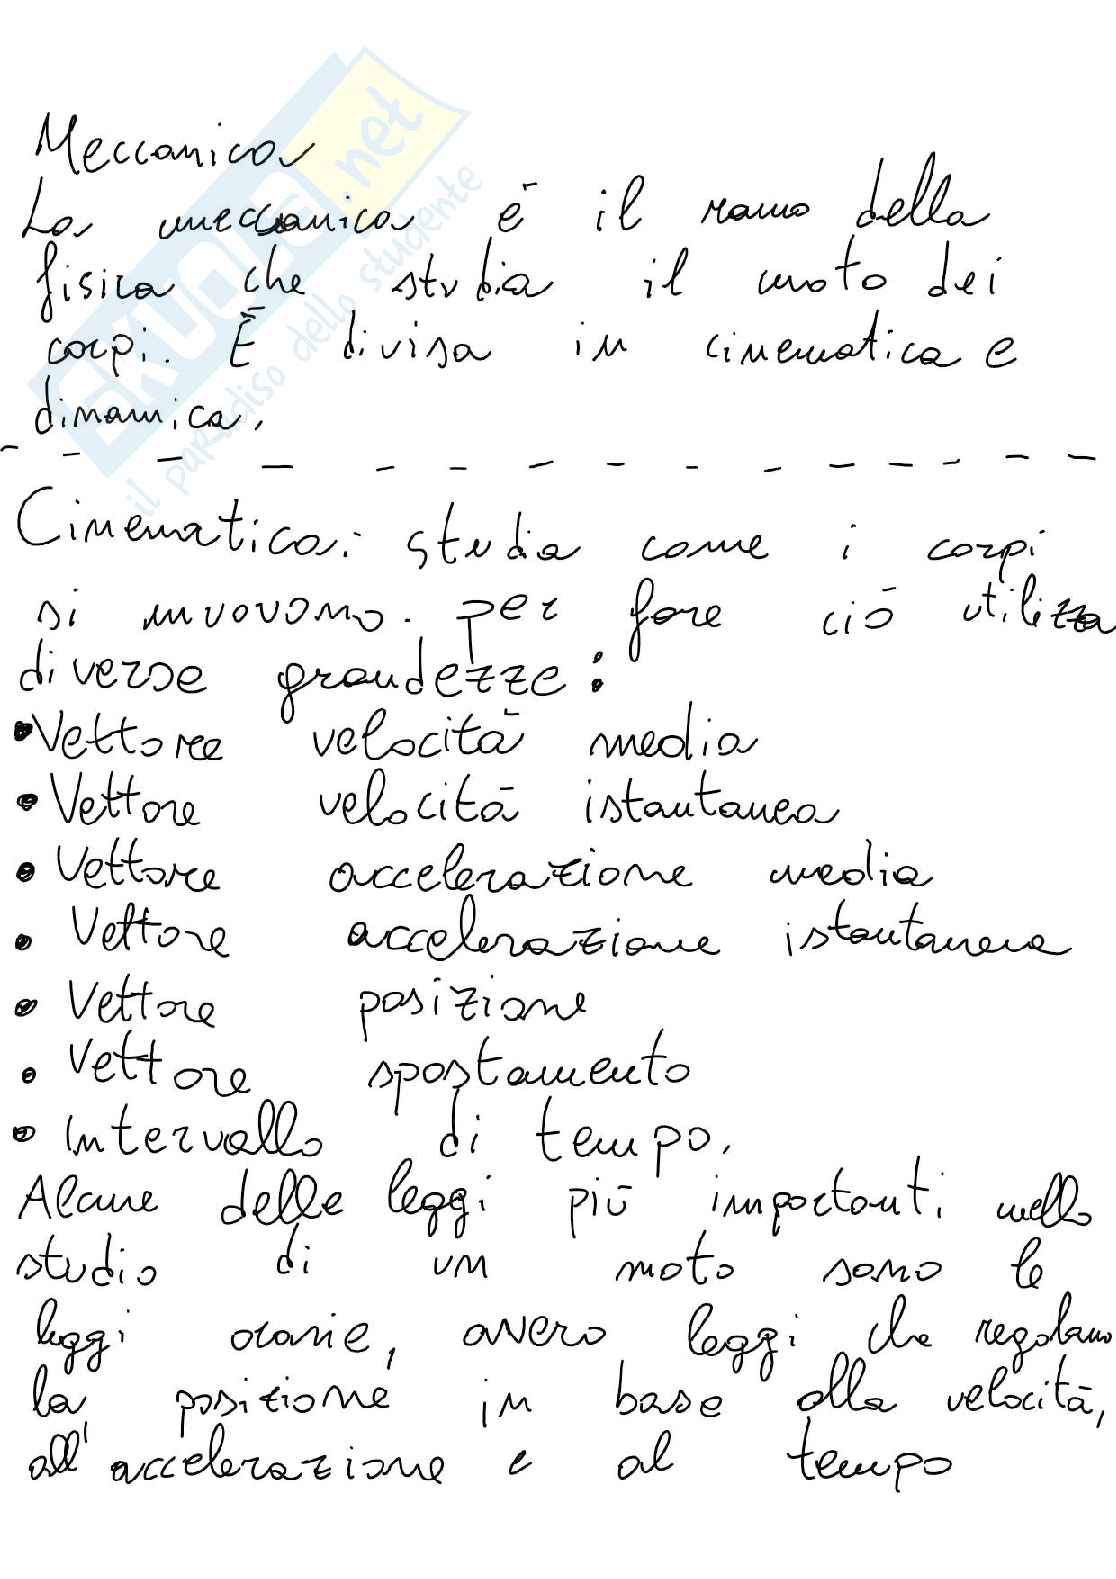 Meccanica
La meccanica è il ramo della
fisica che studia il moto dei
corpi. È divisa in cinematica e
dinamica.
Cinematica: studia come i corpi
si muovono. per fare ciò utilizza
diverse grandezze:
• Vettore velocità media
• Vettore velocità istantanea
• Vettore accelerazione media
• Vettore accelerazione istantanea
• Vettore posizione
• Vettore spostamento
• Intervallo di tempo.
Alcune delle leggi più importanti nello
studio di un moto sono le
leggi orarie, ovvero leggi che regolano
la posizione in base alla velocità,
all'accelerazione e al tempo
SKUOLA.net
il paradiso dello studente